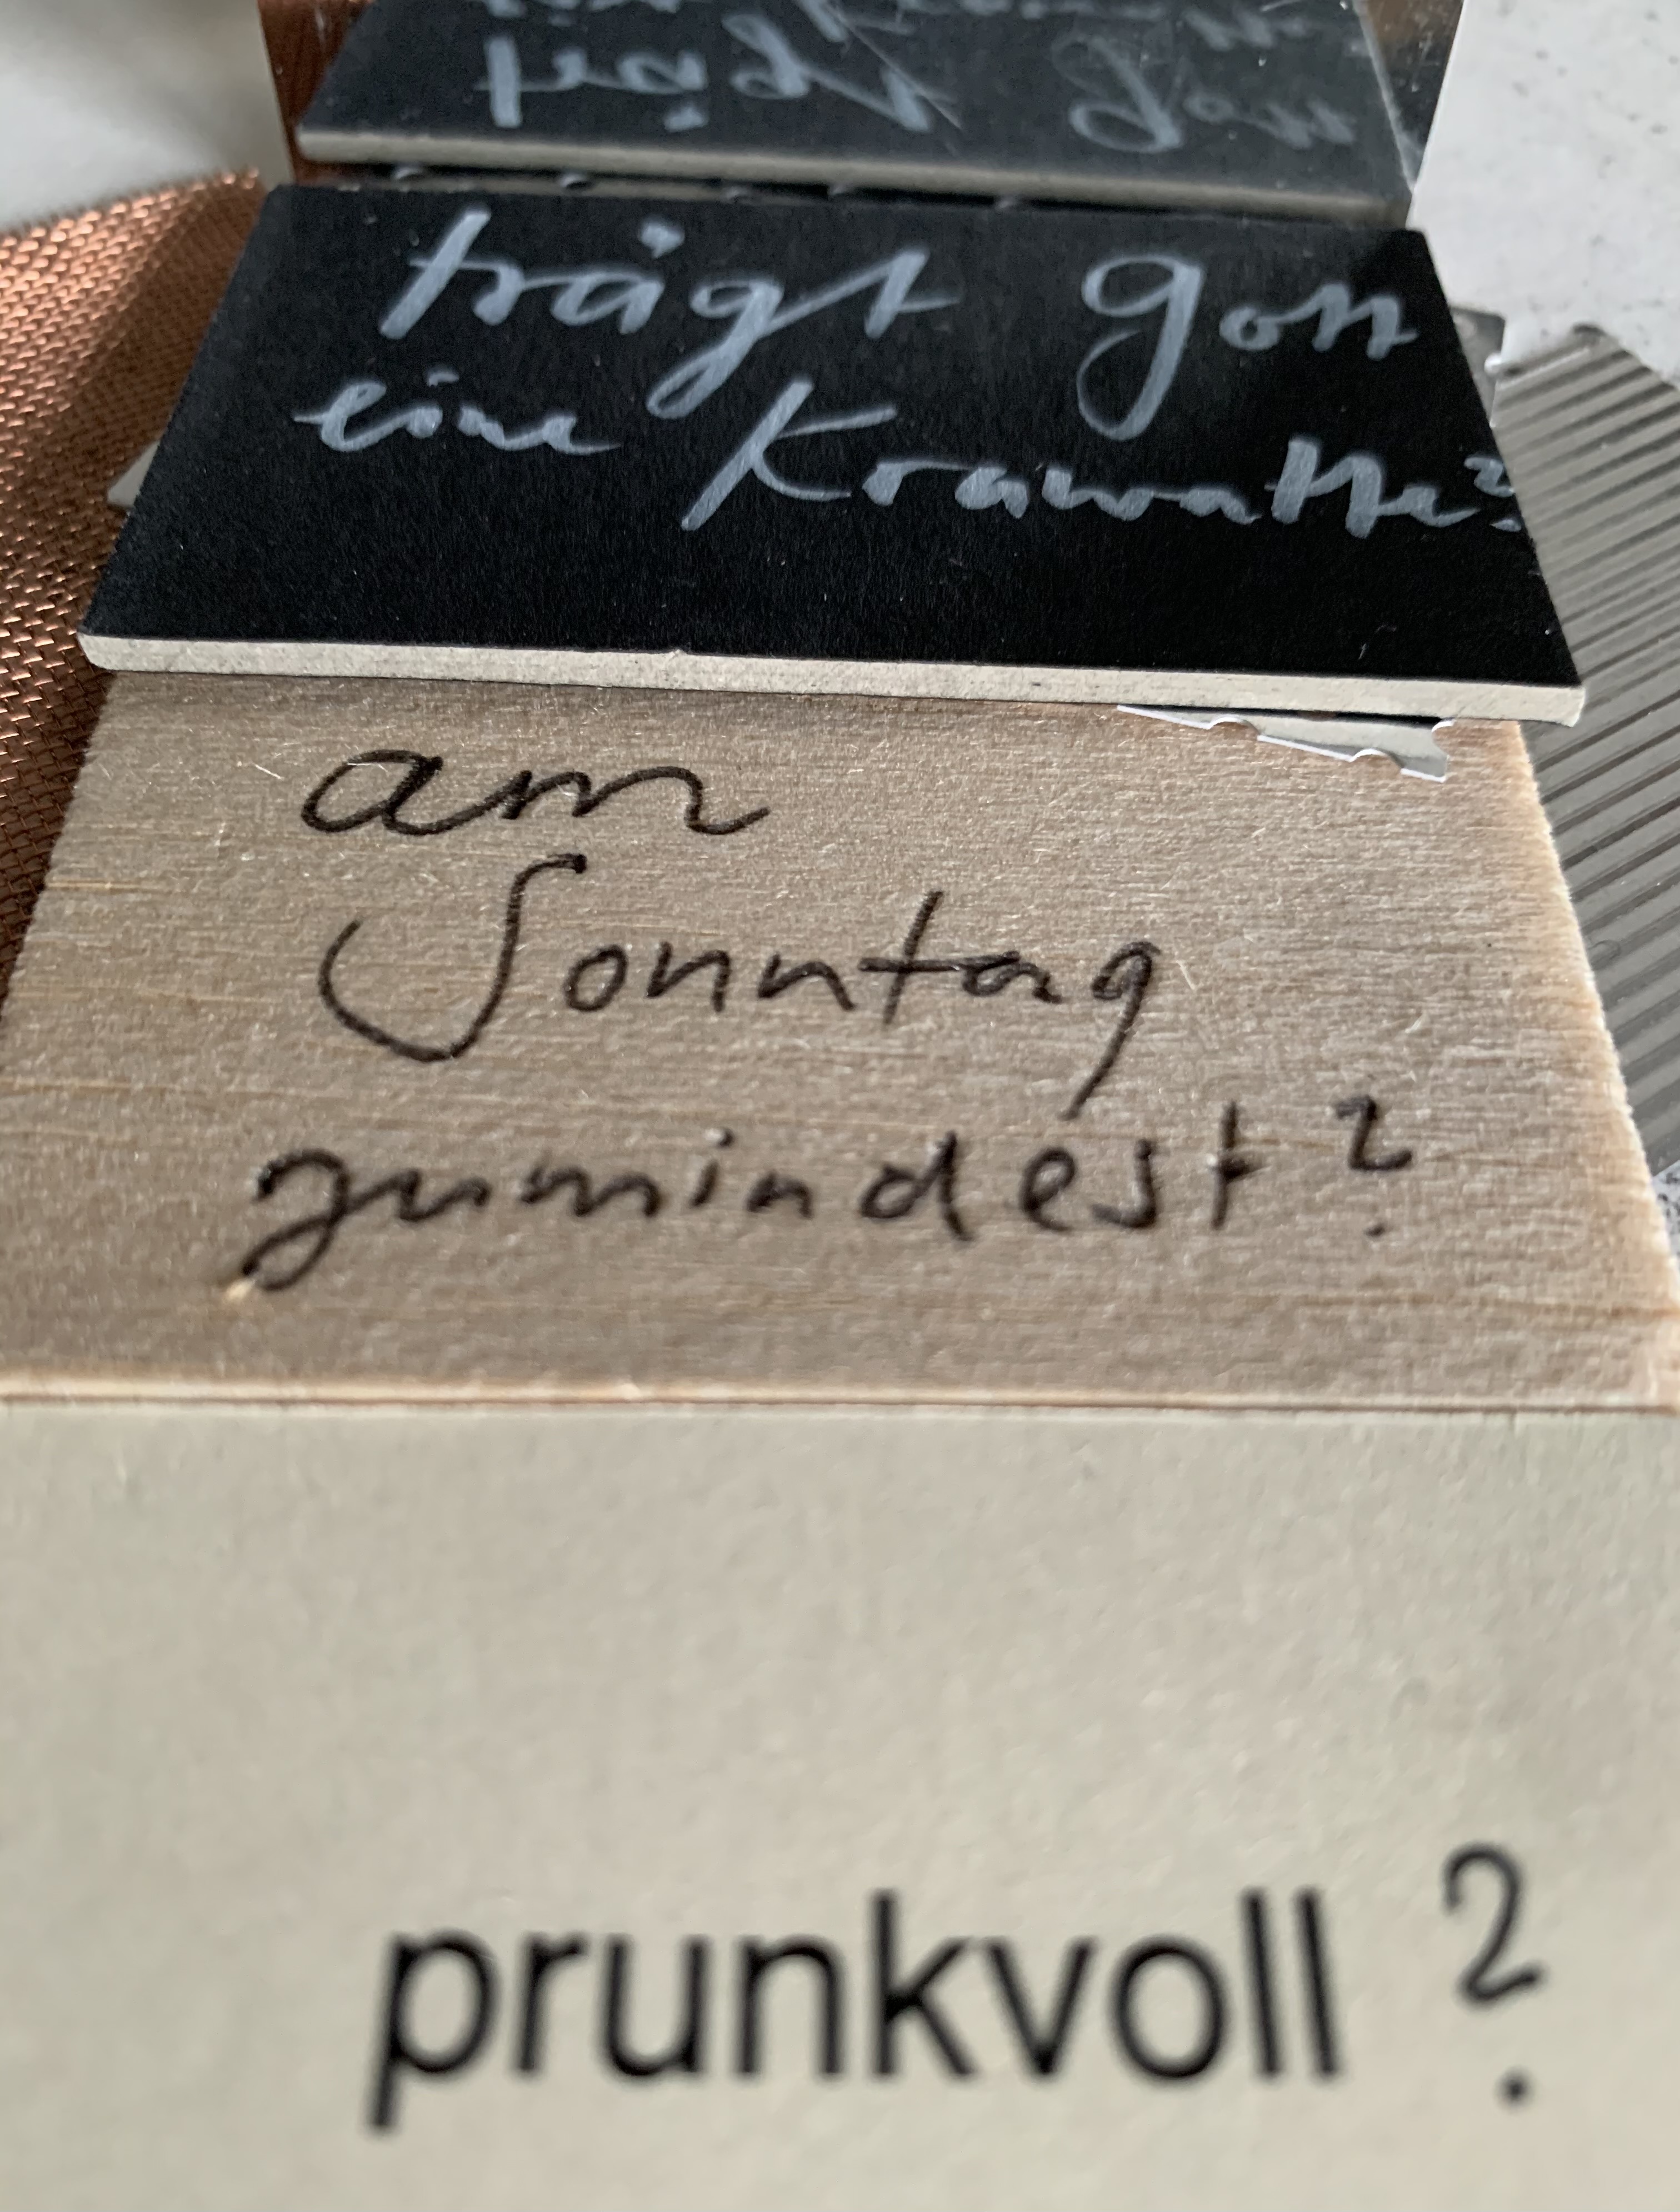 trägt Gott
eine Krawatte?
am
Sonntag
zumindest?
prunkvoll?